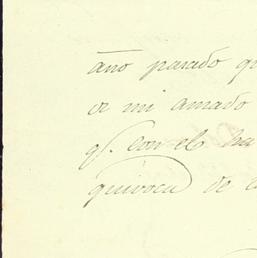 año pasado q
de mi amado
q.e con el ha
quivoca de